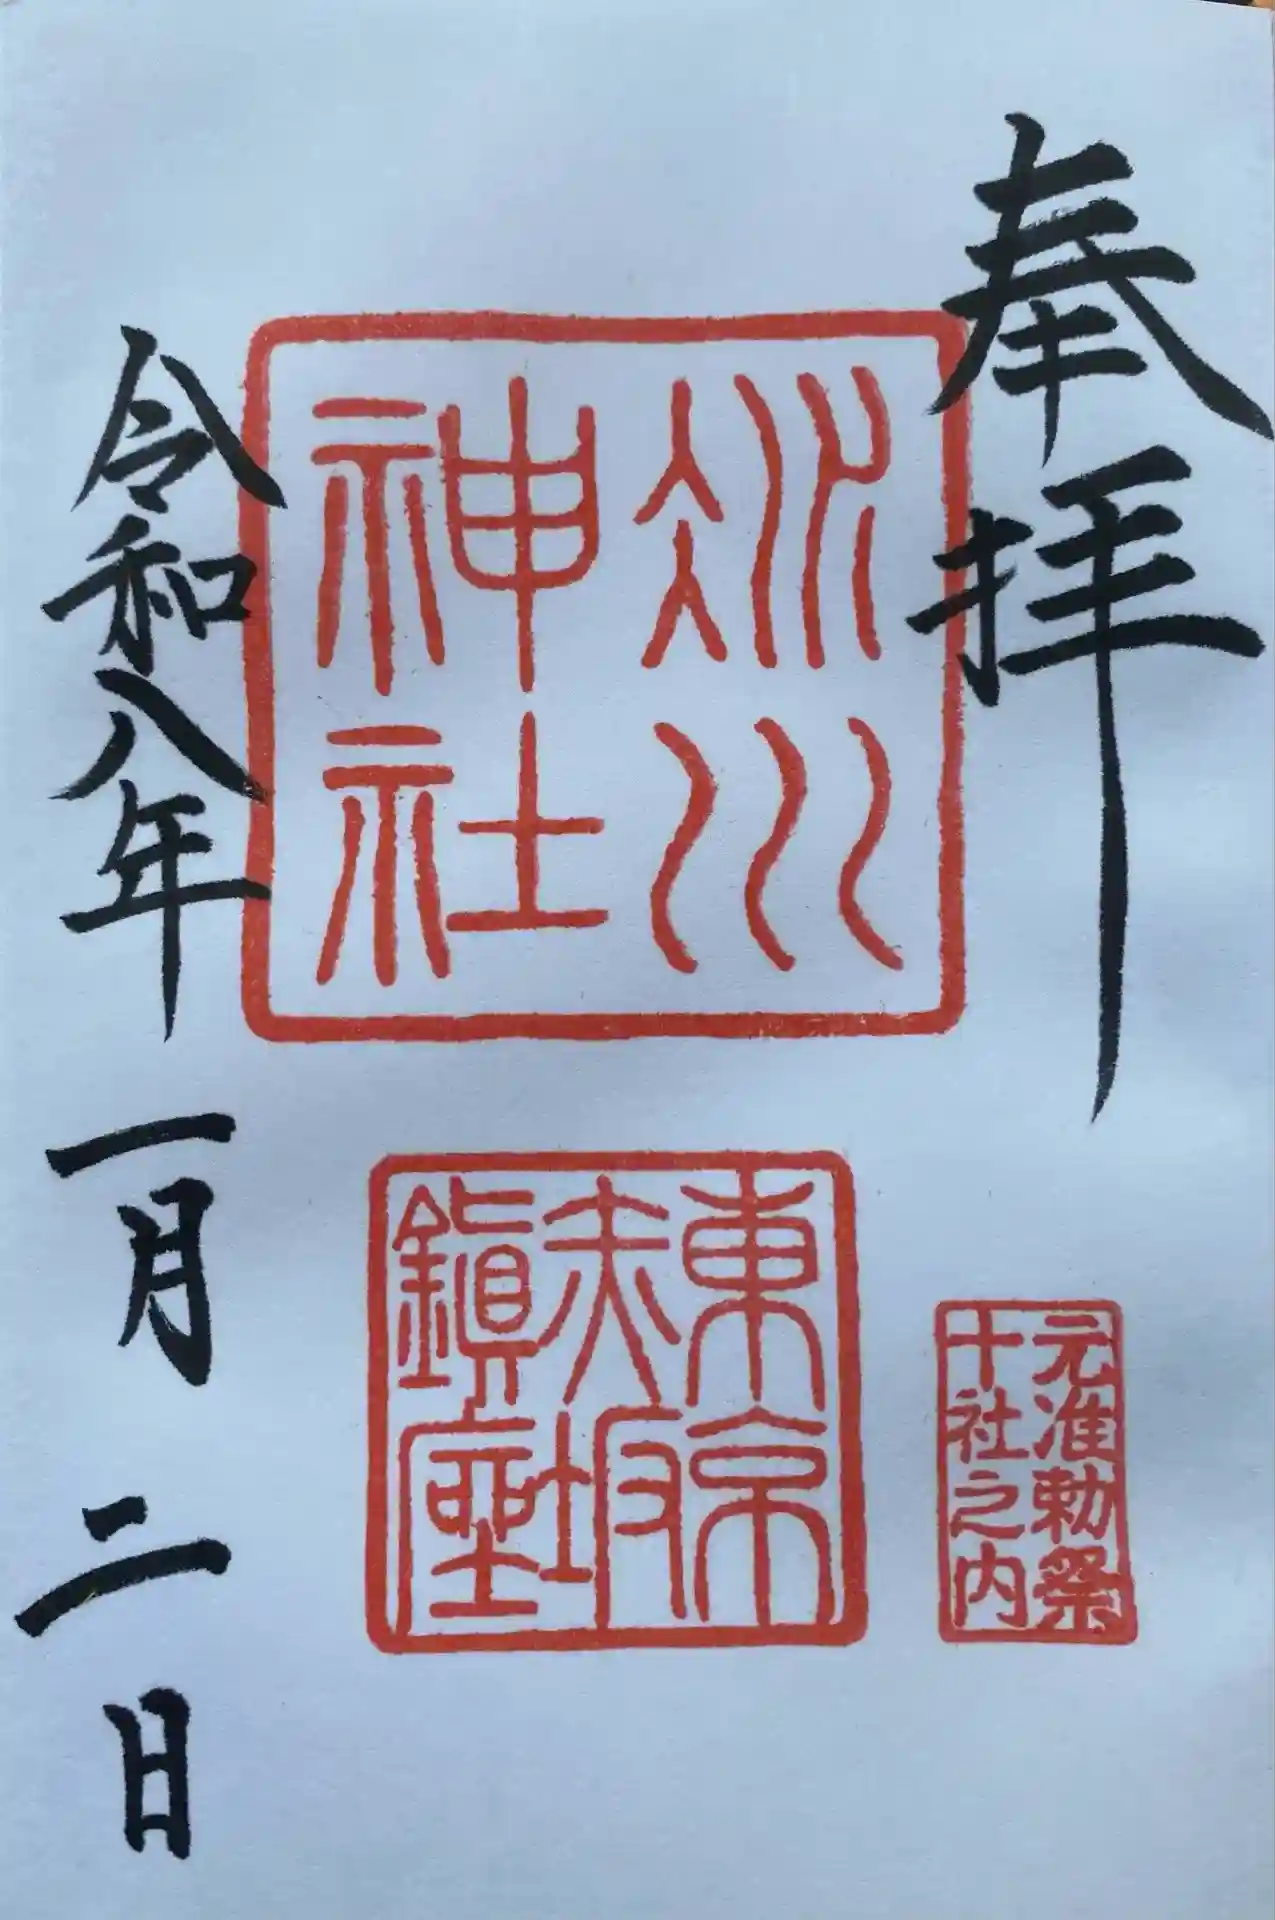 奉拝
氷川
神社
東京
赤坂
鎮座
元准勅祭
十社之内
令和八年一月二日